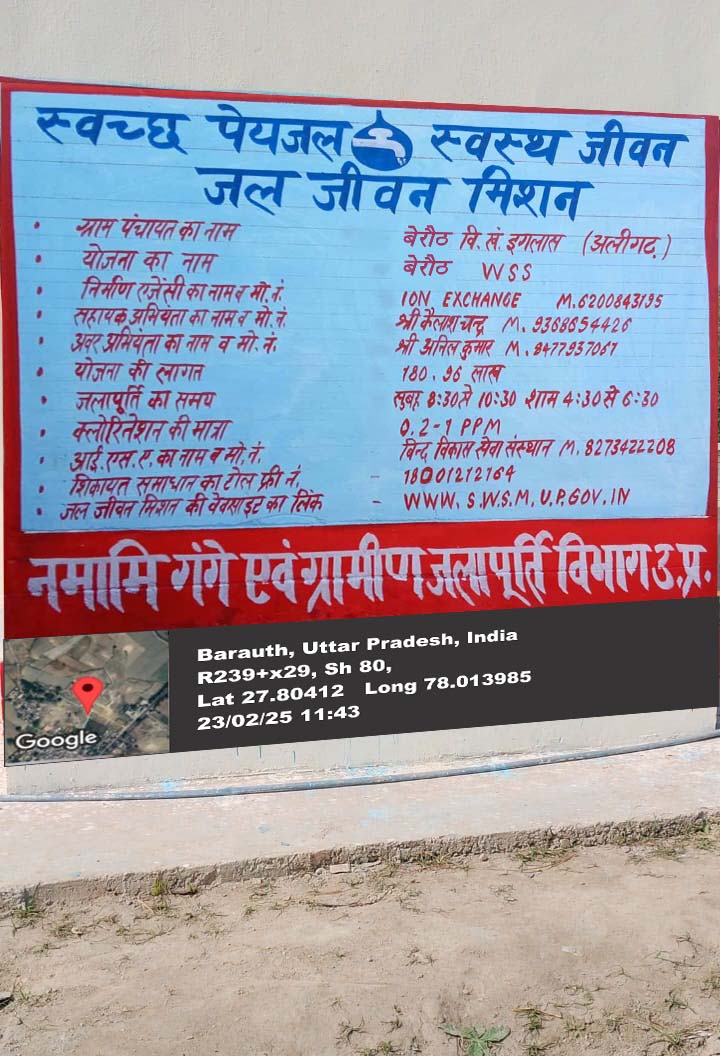 स्वच्छ पेयजल स्वस्थ जीवन
जल जीवन मिशन
• ग्राम पंचायत का नाम बेरौठ वि. खं. इगलास (अलीगढ़)
• योजना का नाम बेरौठ WSS
• निर्माण एजेंसी का नाम व मो. नं. ION EXCHANGE M.6200843195
• सहायक अभियंता का नाम व मो. नं. श्री कैलाश चन्द्र M. 9368654426
• अवर अभियंता का नाम व मो. नं. श्री अनिल कुमार M. 9477937067
• योजना की लागत 180.96 लाख
• जलापूर्ति का समय सुबह 8:30 से 10:30 शाम 4:30 से 6:30
• क्लोरिनेशन की मात्रा 0.2-1 PPM
• आई. एस. ए. का नाम व मो. नं. बिन्द विकास सेवा संस्थान M. 8273422208
• शिकायत समाधान का टोल फ्री नं. - 18001212164
• जल जीवन मिशन की वेवसाइट का लिंक - WWW.SWSM.UP.GOV.IN
नमामि गंगे एवं ग्रामीण जलापूर्ति विभाग उ.प्र.
Barauth, Uttar Pradesh, India
R239+x29, Sh 80,
Lat 27.80412 Long 78.013985
23/02/25 11:43
Google